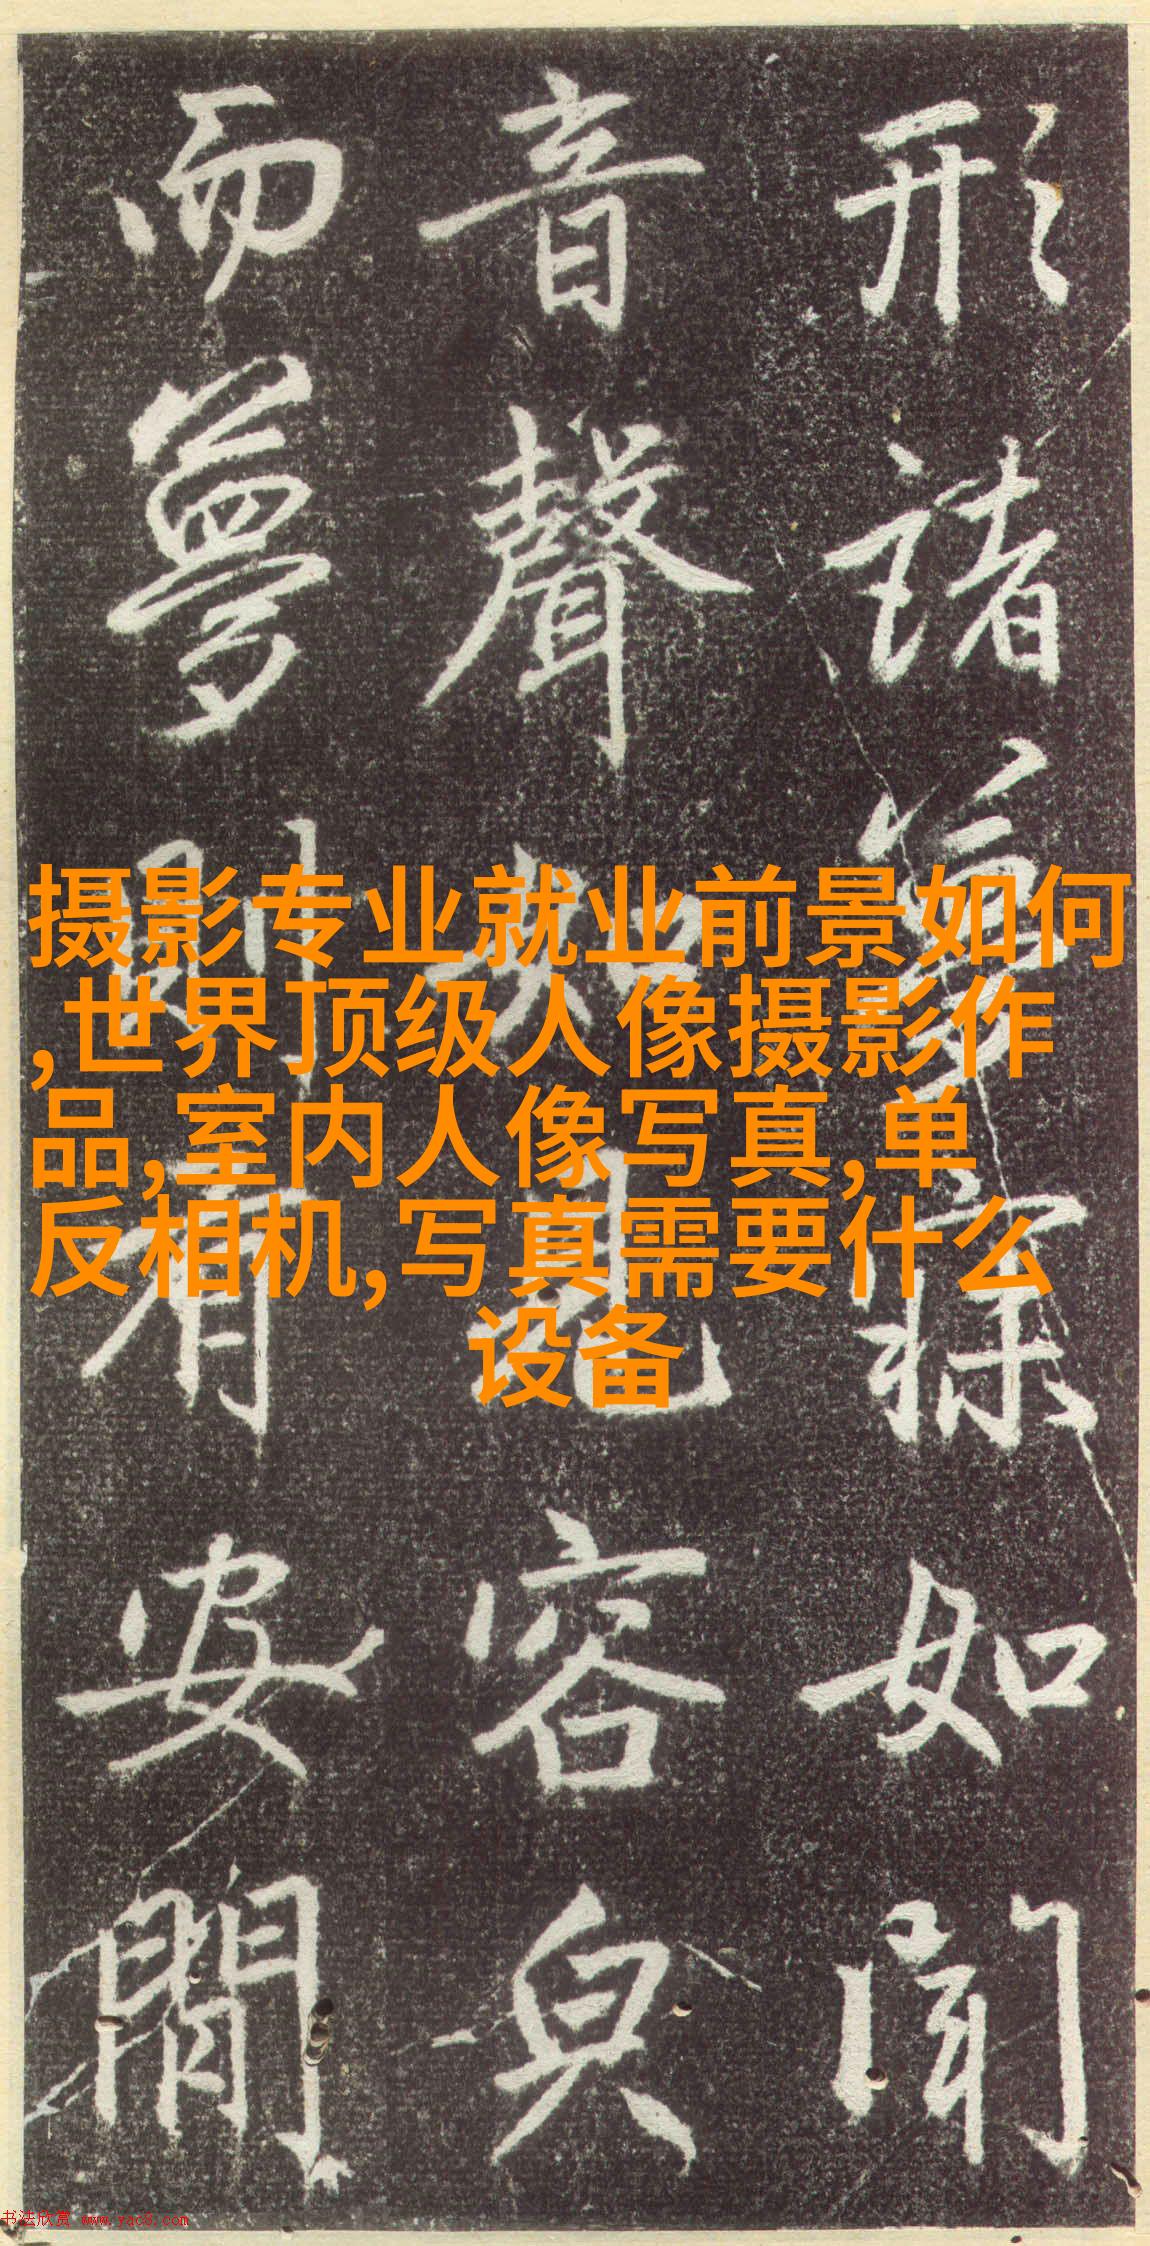 形諸夢寐如聞
音聲如見容皃
而夢則有安閒
摄影专业就业前景如何
,世界顶级人像摄影作
品,室内人像写真,单
反相机,写真需要什么
设备
书法欣赏 www.yac8.com